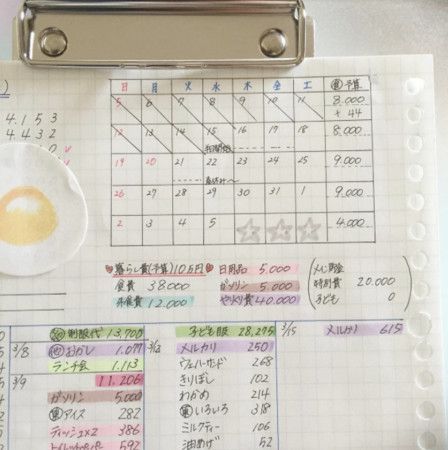 日 月 火 水 木 金 土 食予算
5 6 7 8 9 10 11 8.000
+44
12 13 14 15 16 17 18 8.000
19 20 21 22 23 24 25 9.000
春休み〜
26 27 28 29 30 31 1 9.000
2 3 4 5 4.000
4.153
4.432
暮らし費(予算)10.5万円
日用品 5.000
食費 38.000
ガソリン 5.000
特別費 20.000
外食費 12.000
やりくり費 40.000
子ども 0
制服代 13,700
子ども服 28,295
3/15 メルカリ 615
3/8 おかし 1.077
メルカリ 250
ランチ会 1.113
268
3/9 11.206
きりぼし 102
ガソリン 5.000
わかめ 214
アイス 282
いろいろ 318
ティッシュ×2 386
ミルクティー 106
トイレットペーパー 592
油あげ 52